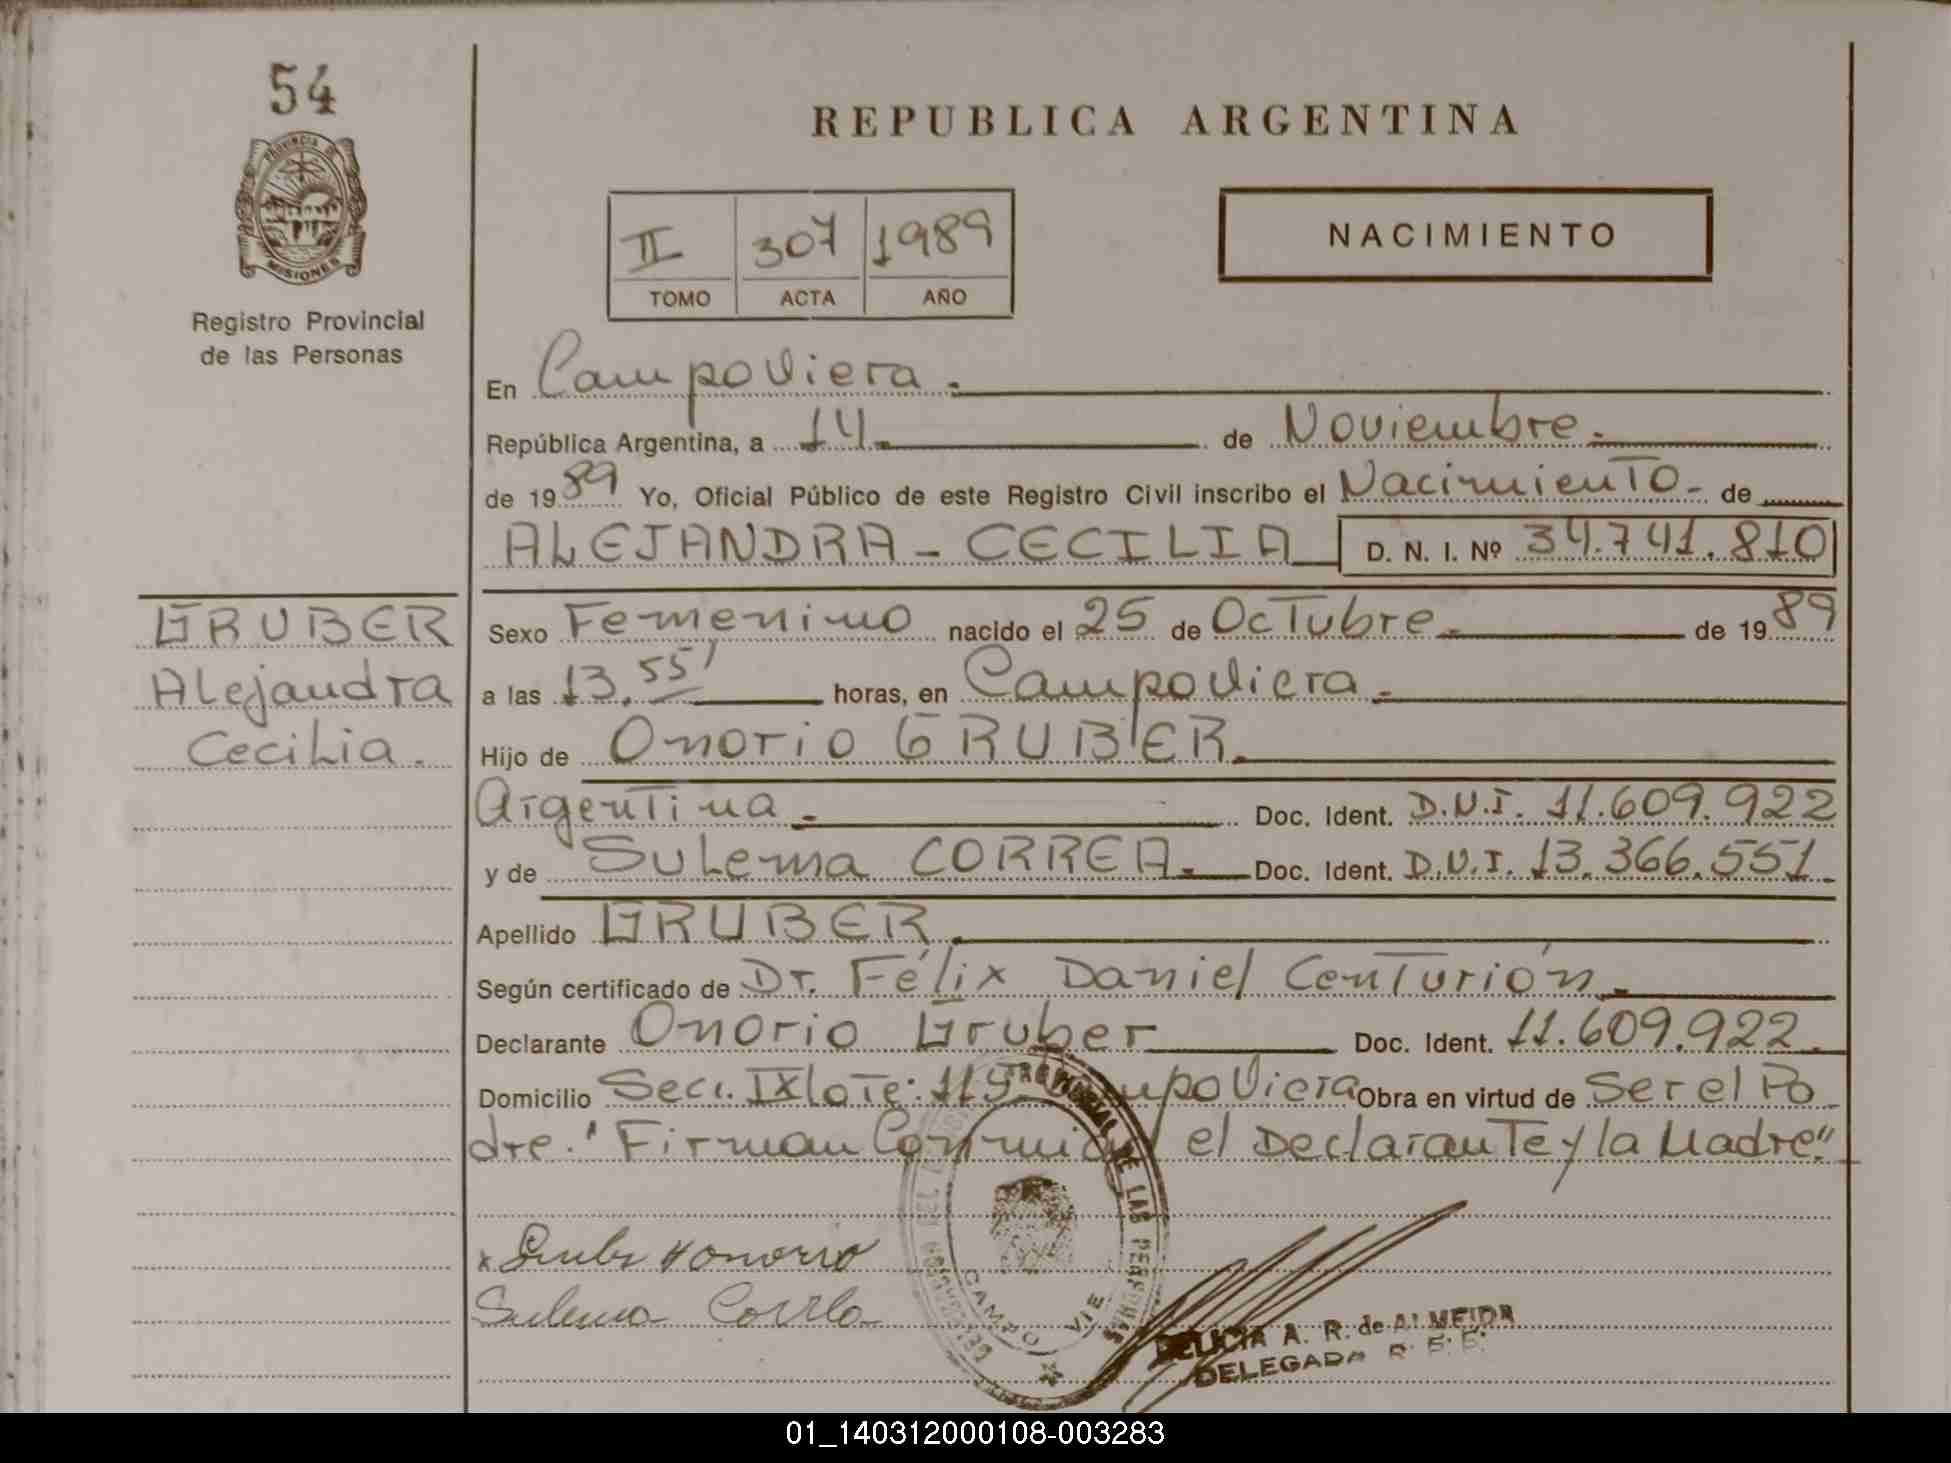 54
PROVINCIA DE
MISIONES
Registro Provincial
de las Personas
REPUBLICA ARGENTINA
II 307 1989
TOMO ACTA AÑO
NACIMIENTO
En Campo Viera.
República Argentina, a 14 de Noviembre.
de 1989 Yo, Oficial Público de este Registro Civil inscribo el Nacimiento - de
ALEJANDRA - CECILIA D. N. I. Nº 34.741.810
GRUBER
Alejandra
Cecilia.
Sexo Femenino nacido el 25 de Octubre. de 1989
a las 13.55' horas, en Campo Viera.
Hijo de Onorio GRUBER.
Argentina. Doc. Ident. D.N.I. 11.609.922
y de Sulema CORREA. Doc. Ident. D.N.I. 13.366.551
Apellido GRUBER
Según certificado de Dr. Félix Daniel Centurión.
Declarante Onorio Gruber Doc. Ident. 11.609.922.
Domicilio Secc. IX lote: 119. Campo Viera Obra en virtud de Ser el Pa
dre. "Firman Conmigo el Declarante y la Madre."
x Gruber Honorio
Sulema Correa
DE LAS PERSONAS
CAMPO VIE
DELICIA A. R. de ALMEIDA
DELEGADA
01_140312000108-003283